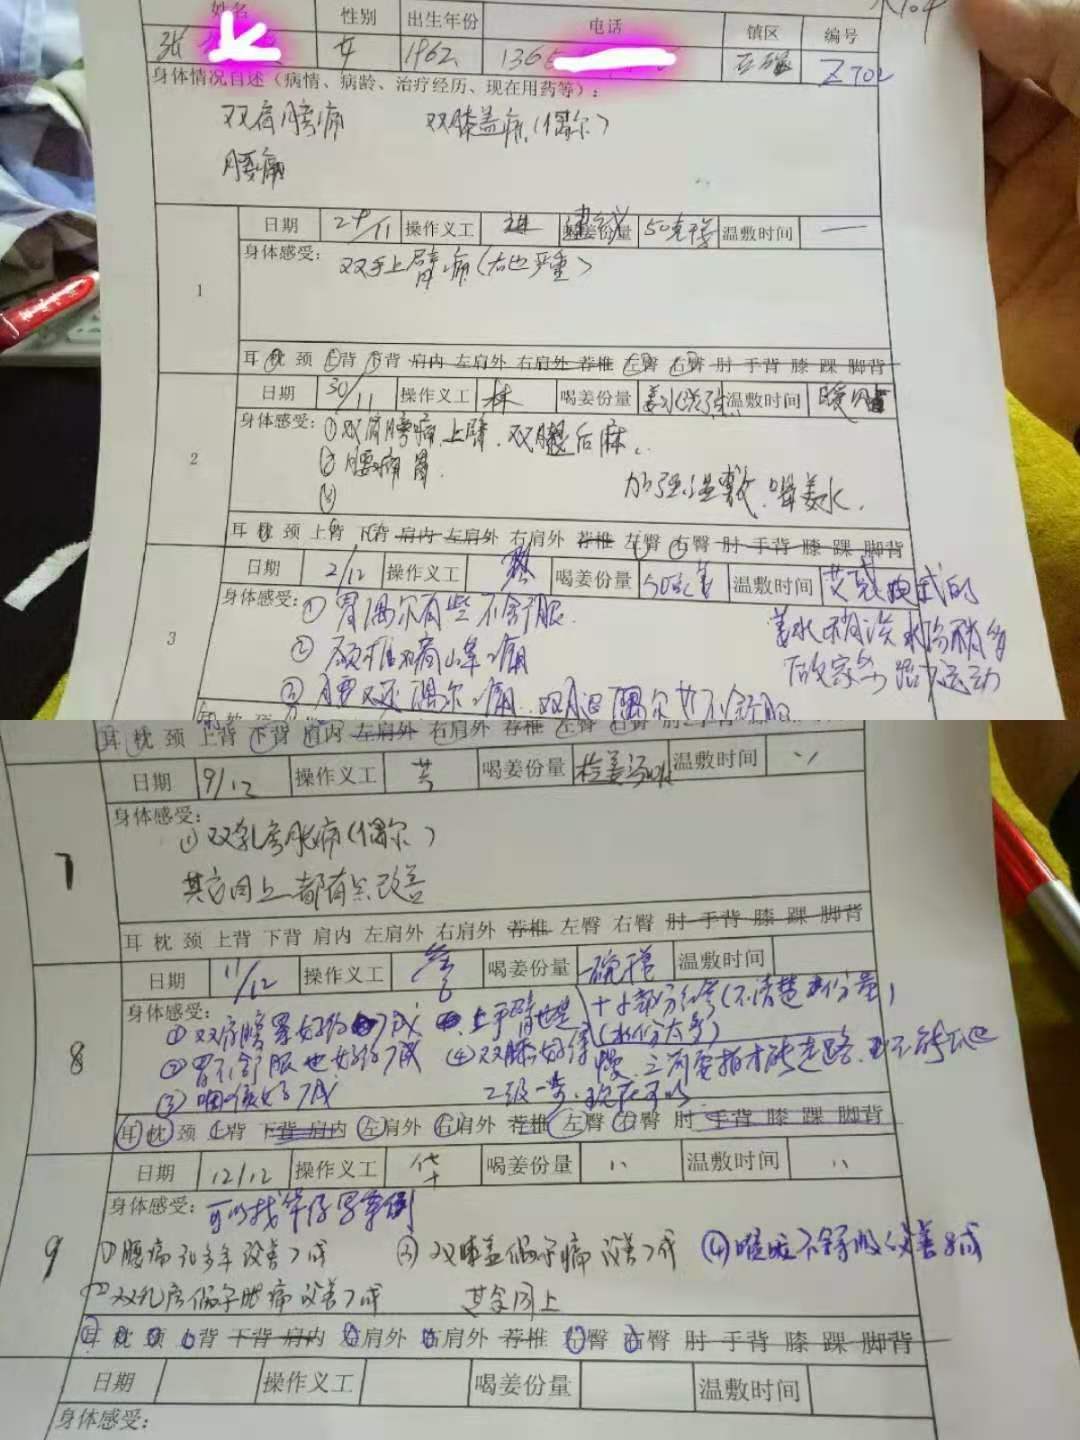 姓名 性别 出生年份 电话 镇区 编号
张 女 1962 136 Z702
身体情况自述（病情、病龄、治疗经历、现在用药等）：
双肩膀痛 双膝盖痛（偶尔）
腰痛
1
日期 29/11 操作义工 喝姜份量 50克 温敷时间 —
身体感受： 双手上臂痛（右也严重）
耳 枕 颈 上背 下背 肩内 左肩外 右肩外 荐椎 左臀 右臀 肘 手背 膝 踝 脚背
2
日期 30/11 操作义工 林 喝姜份量 姜水 温敷时间
身体感受： ①双肩膀痛上臂、双腿后麻、
②腰痛胃.
③
加强温敷、喝姜水、
耳 枕 颈 上背 下背 肩内 左肩外 右肩外 荐椎 左臀 右臀 肘 手背 膝 踝 脚背
3
日期 2/12 操作义工 喝姜份量 50克 温敷时间
身体感受： ①胃偶尔有些不舒服.
姜水稍淡水份稍多
② 痛
做家务 跑下运动
③腰还偶尔痛、双腿偶尔有不舒服
耳 枕 颈 上背 下背 肩内 左肩外 右肩外 荐椎 左臀 右臀
7
日期 9/12 操作义工 共 喝姜份量 温敷时间 〃
身体感受：
①双乳房胀痛（偶尔）
其它同上都有些改善
耳 枕 颈 上背 下背 肩内 左肩外 右肩外 荐椎 左臀 右臀 肘 手背 膝 踝 脚背
8
日期 11/12 操作义工 喝姜份量 一碗 温敷时间
身体感受：
①双肩膀 好的7成 上手臂也是 （不清楚份量）
（水份太多）
②胃不舒服也好的7成 ④双膝好得慢、三前要拍才能走路、
③咽喉好7成 2级一步、现在可以
耳 枕 颈 上背 下背 肩内 左肩外 右肩外 荐椎 左臀 右臀 肘 手背 膝 踝 脚背
9
日期 12/12 操作义工 华 喝姜份量 〃 温敷时间 〃
身体感受： 可以找华仔写案例
①腰痛30多年改善7成 ③双膝盖 痛改善7成 ④喉咙不舒服改善8成
②双乳房 胀痛改善7成 其余同上
耳 枕 颈 上背 下背 肩内 左肩外 右肩外 荐椎 左臀 右臀 肘 手背 膝 踝 脚背
日期 操作义工 喝姜份量 温敷时间
身体感受：